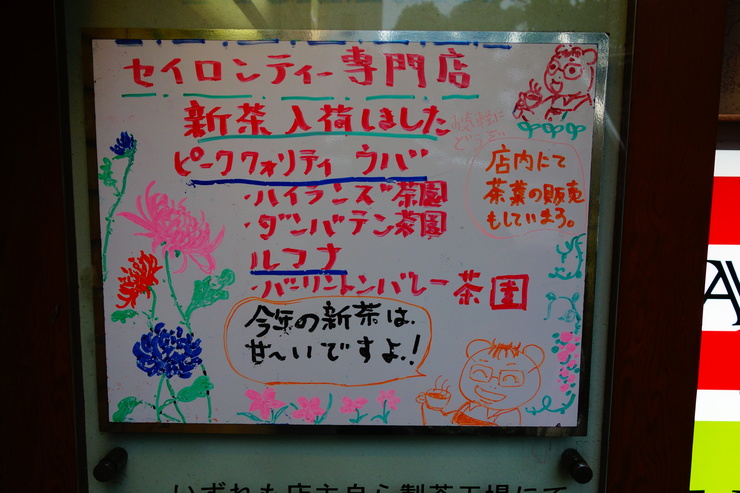 セイロンティー専門店
新茶入荷しました
ピーククォリティ ウバ
・ハイランズ茶園
・ダンバテン茶園
ルフナ
・バーリントンバレー茶園
お気軽に
どうぞ
店内にて
茶葉の販売
もしています。
今年の新茶は、
甘〜いですよ!
いずれも店主自ら製茶工場にて